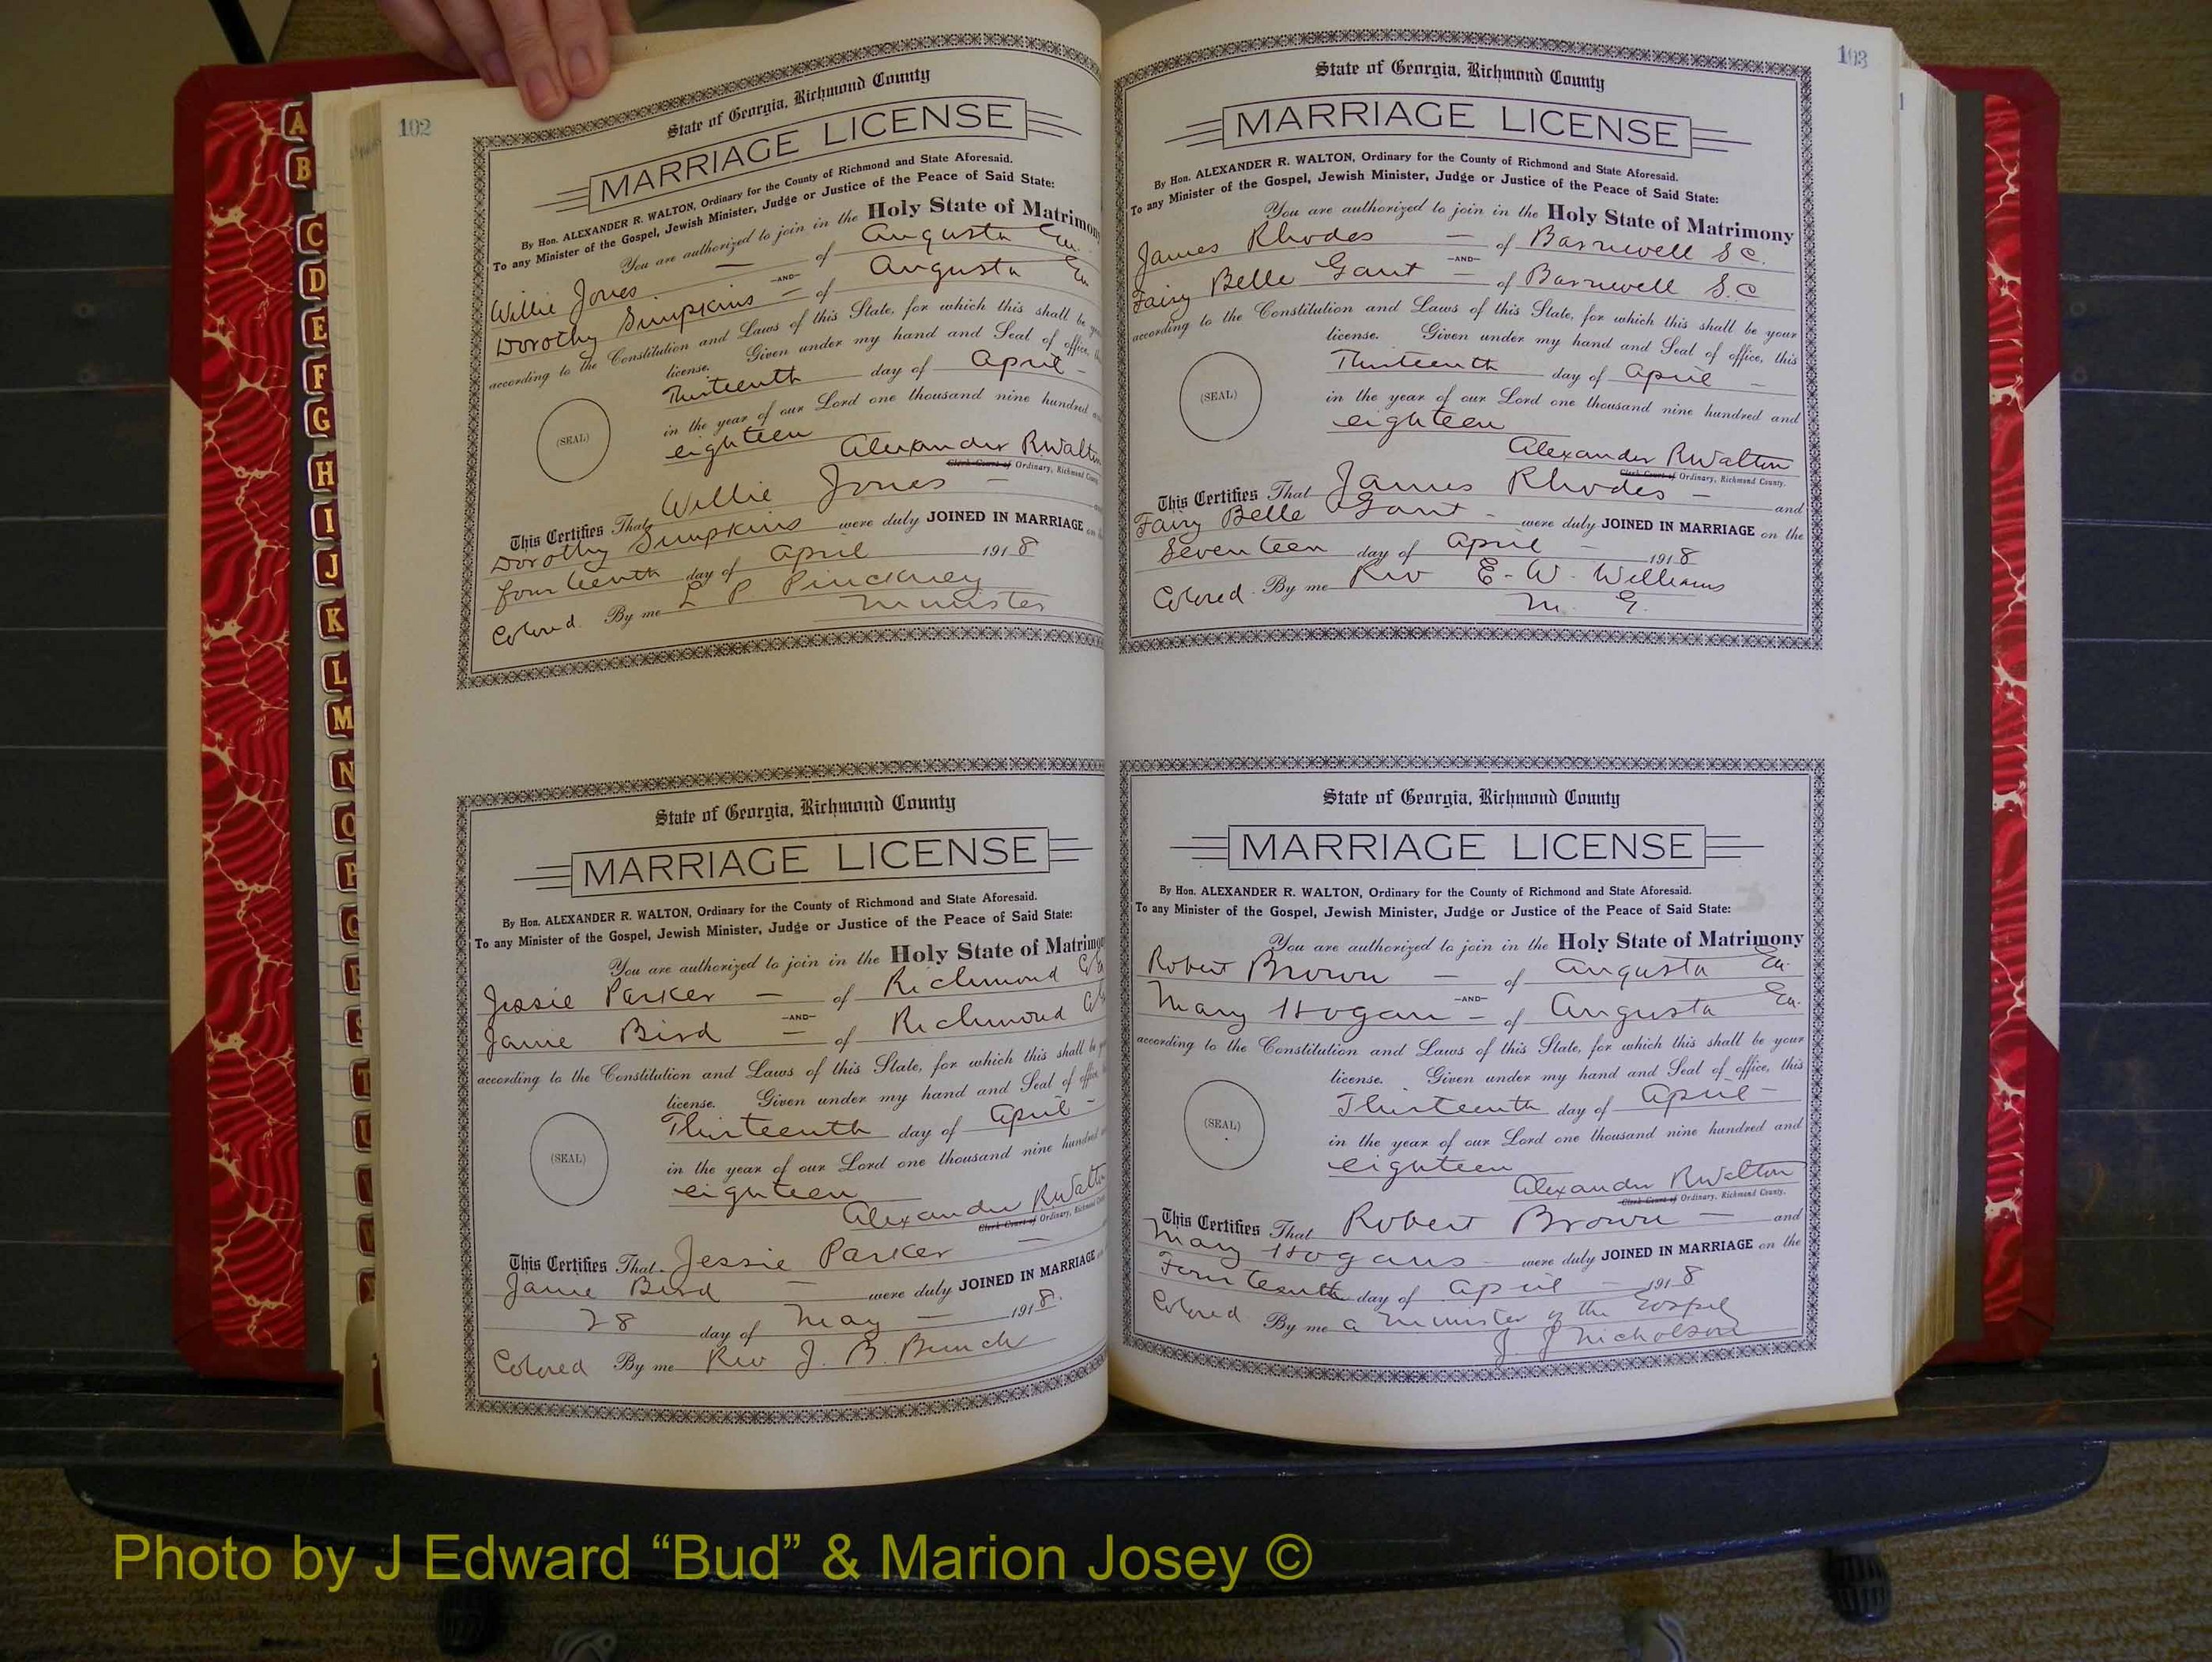 102
State of Georgia, Richmond County
MARRIAGE LICENSE
By Hon. ALEXANDER R. WALTON, Ordinary for the County of Richmond and State Aforesaid.
To any Minister of the Gospel, Jewish Minister, Judge or Justice of the Peace of Said State:
You are authorized to join in the Holy State of Matrimony
Willie Jones — of Augusta Ga.
—AND—
Dorothy Simpkins — of Augusta Ga
according to the Constitution and Laws of this State, for which this shall be
license. Given under my hand and Seal of office,
Thirteenth day of April —
in the year of our Lord one thousand nine hundred
eighteen
Alexander R Walton
Clerk Court of Ordinary, Richmond
This Certifies That Willie Jones —
Dorothy Simpkins were duly JOINED IN MARRIAGE on
fourteenth day of April 1918
Colored. By me L P Pinckney
Minister
State of Georgia, Richmond County
MARRIAGE LICENSE
By Hon. ALEXANDER R. WALTON, Ordinary for the County of Richmond and State Aforesaid.
To any Minister of the Gospel, Jewish Minister, Judge or Justice of the Peace of Said State:
You are authorized to join in the Holy State of Matrimo
Jessie Parker — of Richmond
—AND—
Janie Bird — of Richmond
according to the Constitution and Laws of this State, for which this shall be
license. Given under my hand and Seal of office,
Thirteenth day of April —
(SEAL)
in the year of our Lord one thousand nine hundred
eighteen
Alexander R Walton
Clerk Court of Ordinary, Richmond
This Certifies That Jessie Parker —
Janie Bird — were duly JOINED IN MARRIAGE
28 day of May — 1918.
Colored By me Rev J. B. Bunch
103
State of Georgia, Richmond County
MARRIAGE LICENSE
By Hon. ALEXANDER R. WALTON, Ordinary for the County of Richmond and State Aforesaid.
To any Minister of the Gospel, Jewish Minister, Judge or Justice of the Peace of Said State:
You are authorized to join in the Holy State of Matrimony
James Rhodes — of Barnwell S C.
—AND—
Fairy Belle Gant — of Barnwell S.C
according to the Constitution and Laws of this State, for which this shall be your
license. Given under my hand and Seal of office, this
Thirteenth day of April —
(SEAL)
in the year of our Lord one thousand nine hundred and
eighteen
Alexander R Walton
Clerk Court of Ordinary, Richmond County.
This Certifies That James Rhodes — and
Fairy Belle Gant — were duly JOINED IN MARRIAGE on the
Seventeen day of April — 1918
Colored. By me Rev E. W. Williams
M. G.
State of Georgia, Richmond County
MARRIAGE LICENSE
By Hon. ALEXANDER R. WALTON, Ordinary for the County of Richmond and State Aforesaid.
To any Minister of the Gospel, Jewish Minister, Judge or Justice of the Peace of Said State:
You are authorized to join in the Holy State of Matrimony
Robert Brown — of Augusta Ga.
—AND—
Mary Hogan — of Augusta Ga.
according to the Constitution and Laws of this State, for which this shall be your
license. Given under my hand and Seal of office, this
Thirteenth day of April —
(SEAL)
in the year of our Lord one thousand nine hundred and
eighteen
Alexander R Walton
Clerk Court of Ordinary, Richmond County.
This Certifies That Robert Brown — and
Mary Hogans — were duly JOINED IN MARRIAGE on the
Fourteenth day of April — 1918
Colored By me a Minister of the Gospel
J. J Nicholson
A
B
C
D
E
F
G
H
I
J
K
L
M
N
O
P
Q
R
S
T
U
Photo by J Edward “Bud” & Marion Josey ©